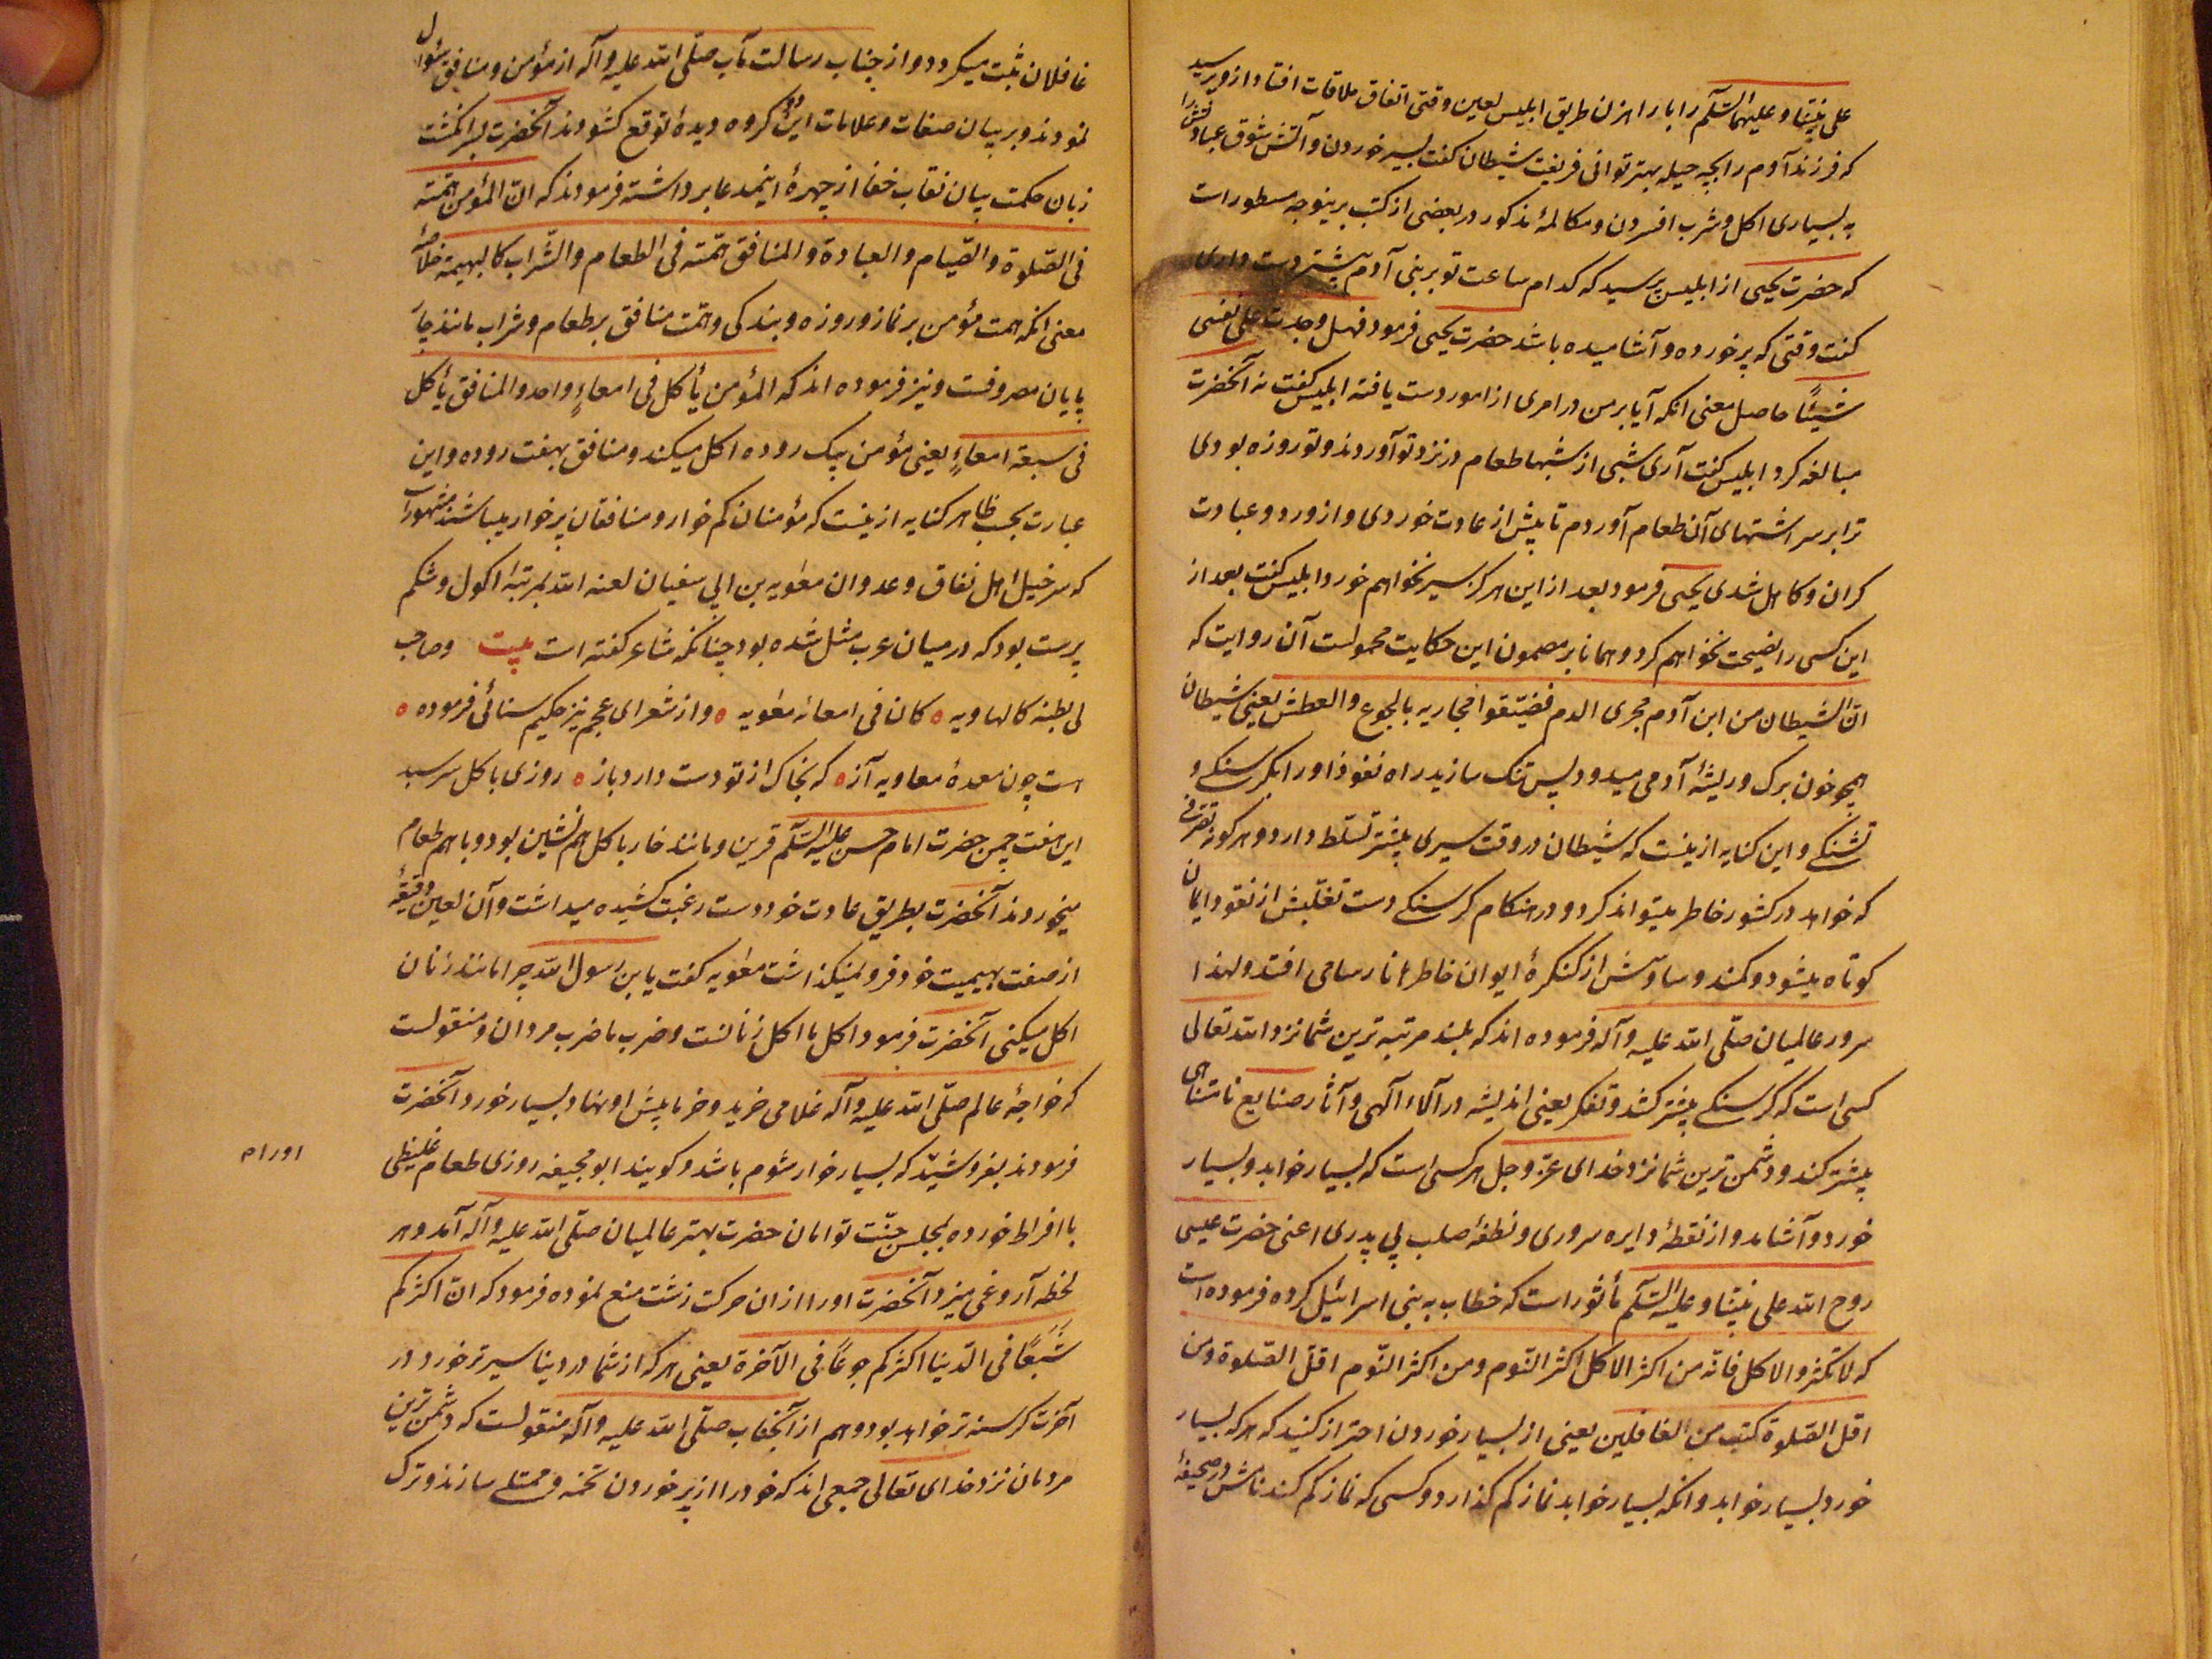 علی نبیّنا و علیهما السّلام را با راهزن طریق ابلیس لعین وقتی اتفاق ملاقات افتاد ازو پرسید
که فرزند آدم را بچه حیله بهتر توانی فریفت شیطان کفت بسیر خوردن و آتش شوق عبادتش را
به بسیاری اکل و شرب افسردن و مکالمهٔ مذکور در بعضی از کتب برینوجه مسطور است
که حضرت یحیی از ابلیس پرسید که کدام ساعت تو بر بنی آدم بیشتر دست داری
کفت وقتی که پر خورده و آشامیده باشد حضرت یحیی فرمود فهل وجدت علی نفسی
شیئًا حاصل معنی انکه آیا بر من در امری از امور دست یافته ابلیس کفت نه آنحضرت
مبالغه کرد ابلیس کفت آری شبی از شبها طعام در نزد تو آوردند و تو روزه بودی
ترا بر سر اشتهای آن طعام آوردم تا بیش از عادت خوردی و از ورد و عبادت
کران و کاهل شدی یحیی فرمود بعد از این هرکز سیر نخواهم خورد ابلیس کفت بعد از
این کسی را نصیحت نخواهم کرد و همانا بر مضمون این حکایت محمولست آن روایت که
انّ الشیطان من ابن آدم مجری الدم فضیّقوا مجاریه بالجوع والعطش یعنی شیطان
همچو خون برک و ریشهٔ آدمی میدود پس تنک سازید راه نفوذ او را بکرسنکی و
تشنکی و این کنایه ازینست که شیطان در وقت سیری بیشتر تسلّط دارد و هر کونه تصرفی
که خواهد در کشور خاطر میتواند کرد و در هنکام کرسنکی دست تغلّبش از نقود ایمان
کوتاه میشود و کمند وساوسش از کنکرهٔ ایوان خاطرها نارسا می افتد ولهذا
سرور عالمیان صلّی الله علیه و آله فرموده اند که بلند مرتبه ترین شما نزد الله تعالی
کسی است که کرسنکی بیشتر کشد و تفکر یعنی اندیشه در آلاء آلهی و آثار صنایع نامتناهی
بیشتر کند و دشمن ترین شما نزد خدای عزّ و جل هر کسی است که بسیار خوابد و بسیار
خورد و آشامد و از نقطهٔ دایره سروری و نطفهٔ صلب بی پدری اعنی حضرت عیسی
روح الله علی نبیّنا و علیه السّلام مأثور است که خطاب به بنی اسرائیل کرده فرموده است
که لا تکثروا الاکل فانّه من اکثر الاکل اکثر النّوم و من اکثر النّوم اقلّ الصّلوة و من
اقل الصّلوة کتب من الغافلین یعنی از بسیار خوردن احتراز کنید که هر که بسیار
خورد بسیار خوابد و انکه بسیار خوابد نماز کم کذارد و کسی که نماز کم کند نامش در صحیفهٔ
غافلان ثبت میکردد و از جناب رسالت مآب صلّی الله علیه و آله از مؤمن و منافق سؤال
نمودند و بر بیان صفات و علامات این دو کروه دیدهٔ توقع کشودند آنحضرت بسرانکشت
زبان حکمت بیان نقاب خفا از چهرهٔ اینمدعا برداشته فرمودند که انّ المؤمن همّته
فی الصّلوة و الصّیام و العبادة و المنافق همّته فی الطعام و الشّراب کالبهیمة خلاصهٔ
معنی انکه همت مؤمن بر نماز و روزه و بندکی و همّت منافق بر طعام و شراب مانند چار
پایان مصروفست و نیز فرموده اند که المؤمن یأکل فی امعاءٍ واحد و المنافق یأکل
فی سبعة امعاءٍ یعنی مؤمن بیک روده اکل میکند و منافق بهفت روده و این
عبارت بحسب ظاهر کنایه ازینست که مؤمنان کم خوار و منافقان پر خوار میباشند مشهور است
که سر خیل اهل نفاق و عدوان معویه بن ابی سفیان لعنه الله بمرتبهٔ اکول و شکم
پرست بود که در میان عرب مثل شده بود چنانکه شاعر کفته است بیت وصاحب
لی بطنه کالهاویه ه کان فی امعائه معویه ه و از شعرای عجم نیز حکیم سنائی فرموده ه
است چون معدهٔ معاویه آز ه که بخاک از تو دست دارد باز ه روزی با کل سرسبد
این هفت چمن حضرت امام حسن علیه السّلام قرین و مانند خار با کل هم نشین بود و با هم طعام
میخوردند آنحضرت بطریق عادت خود دست رغبت کشیده میداشت و آن لعین دقیقهٔ
از صفت بهیمیت خود فرو نمیکذاشت معویه کفت یا بن رسول الله چرا مانند زنان
اکل میکنی آنحضرت فرمود اکل ما اکل زنانست و ضرب ما ضرب مردان و منقولست
که خواجهٔ عالم صلّی الله علیه و آله غلامی خرید و خرما پیش او نهاد بسیار خورد آنحضرت
فرمودند بفروشید که بسیار خوار شوم باشد و کویند ابو جحیفه روزی طعام غلیظی
با افراط خورده بمجلس جنّت توامان حضرت بهتر عالمیان صلّی الله علیه و آله آمد و هر
لحظه آروغی میزد آنحضرت او را از ان حرکت زشت منع نموده فرمود که انّ اکثرکم
شَبَعًا فی الدّنیا اکثرکم جوعًا فی الآخرة یعنی هر که از شما در دنیا سیر تر خورد در
آخرت کرسنه تر خواهد بود و هم از آنجناب صلّی الله علیه و آله منقولست که دشمن ترین
مردمان نزد خدای تعالی جمعی اند که خود را از پر خوردن تخمه و ممتلی سازند و ترک